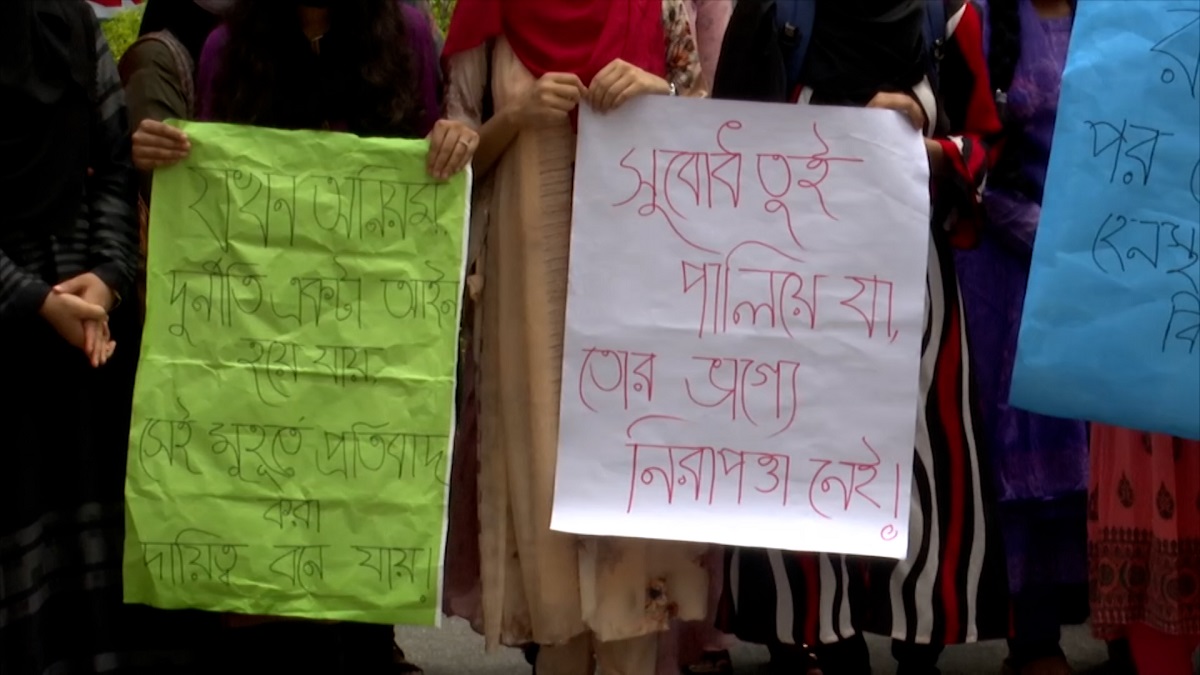 যখন অনিয়ম,
দুর্নীতি একটা আইন
হয়ে যায়,
সেই মুহূর্তে প্রতিবাদ
করা
দায়িত্ব বনে যায়।
সুবোধ তুই
পালিয়ে যা,
তোর ভাগ্যে
নিরাপত্তা নেই!
পর